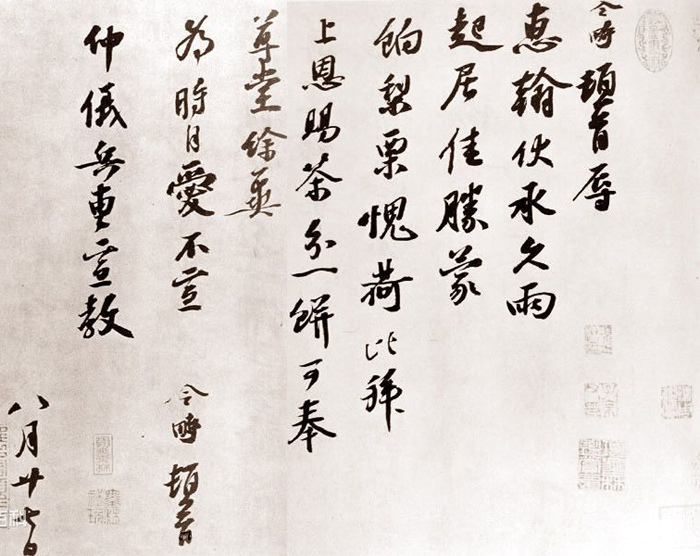 令畤頓首辱
惠翰伏承久雨
起居佳勝蒙
餉梨栗愧荷比拜
上恩賜茶分一餅可奉
尊堂餘冀
為時自愛不宣
令畤頓首
仲儀兵曹宣教
八月廿七日
百科